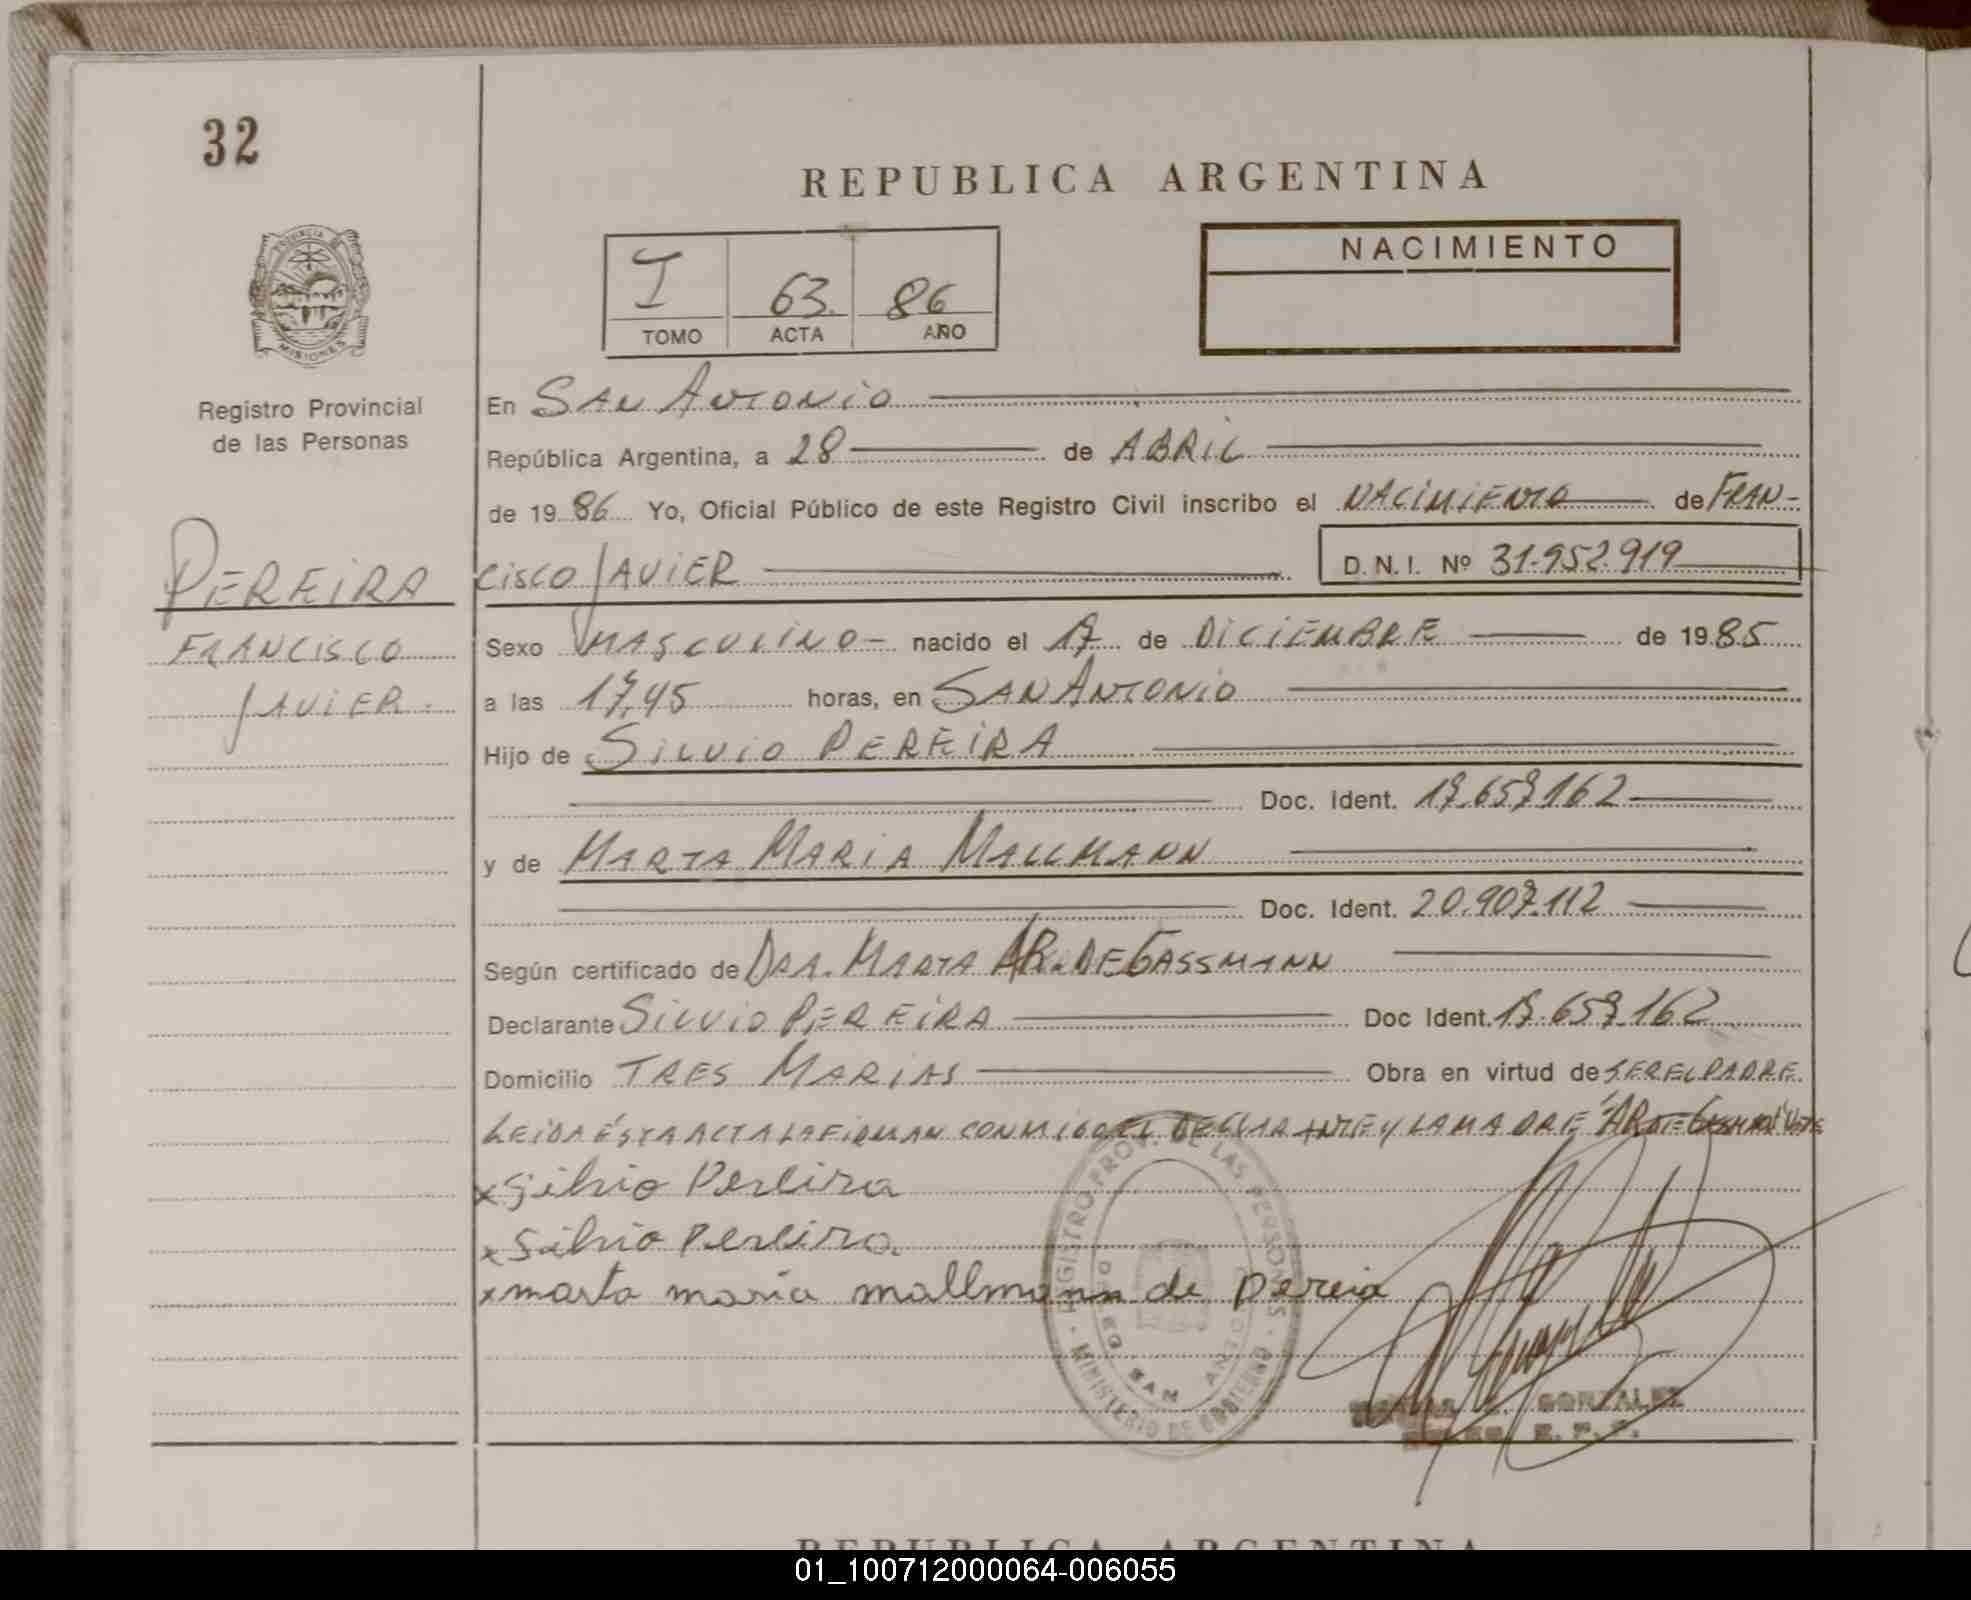 32
REPUBLICA ARGENTINA
PROVINCIA DE MISIONES
I 63. 86
TOMO ACTA AÑO
NACIMIENTO
Registro Provincial
de las Personas
En SAN ANTONIO
República Argentina, a 28 de ABRIL
de 19 86 Yo, Oficial Público de este Registro Civil inscribo el NACIMIENTO de FRAN-
PEREIRA
CISCO JAVIER D. N. I. Nº 31.952.919
FRANCISCO
Sexo MASCULINO - nacido el 17 de DICIEMBRE de 19 85
JAVIER.
a las 17,45 horas, en SAN ANTONIO
Hijo de SILVIO PEREIRA
Doc. Ident. 17.657.162
y de MARTA MARIA MALLMANN
Doc. Ident. 20.907.112
Según certificado de DRA. MARTA AR. DE GASSMANN
Declarante SILVIO PEREIRA Doc Ident. 17.657.162
Domicilio TRES MARIAS Obra en virtud de SER EL PADRE.
LEIDA ÉSTA ACTA LA FIRMAN CONMIGO EL DECLARANTE Y LA MADRE "AR DE GASSMANN"
x Silvio Pereira
x Silvio Pereira.
x marta maria mallmann de Pereia
REGISTRO PROV. DE LAS PERSONAS
MINISTERIO DE GOBIERNO
SAN ANTONIO
GONZALEZ
REPUBLICA ARGENTINA
01_100712000064-006055